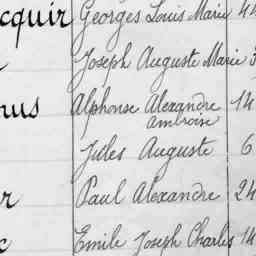 cquir Georges Louis Marie 44
Joseph Auguste Marie
Alphonse Alexandre 14
ambroise
Jules Auguste 6
Paul Alexandre 24
Emile Joseph Charles 14